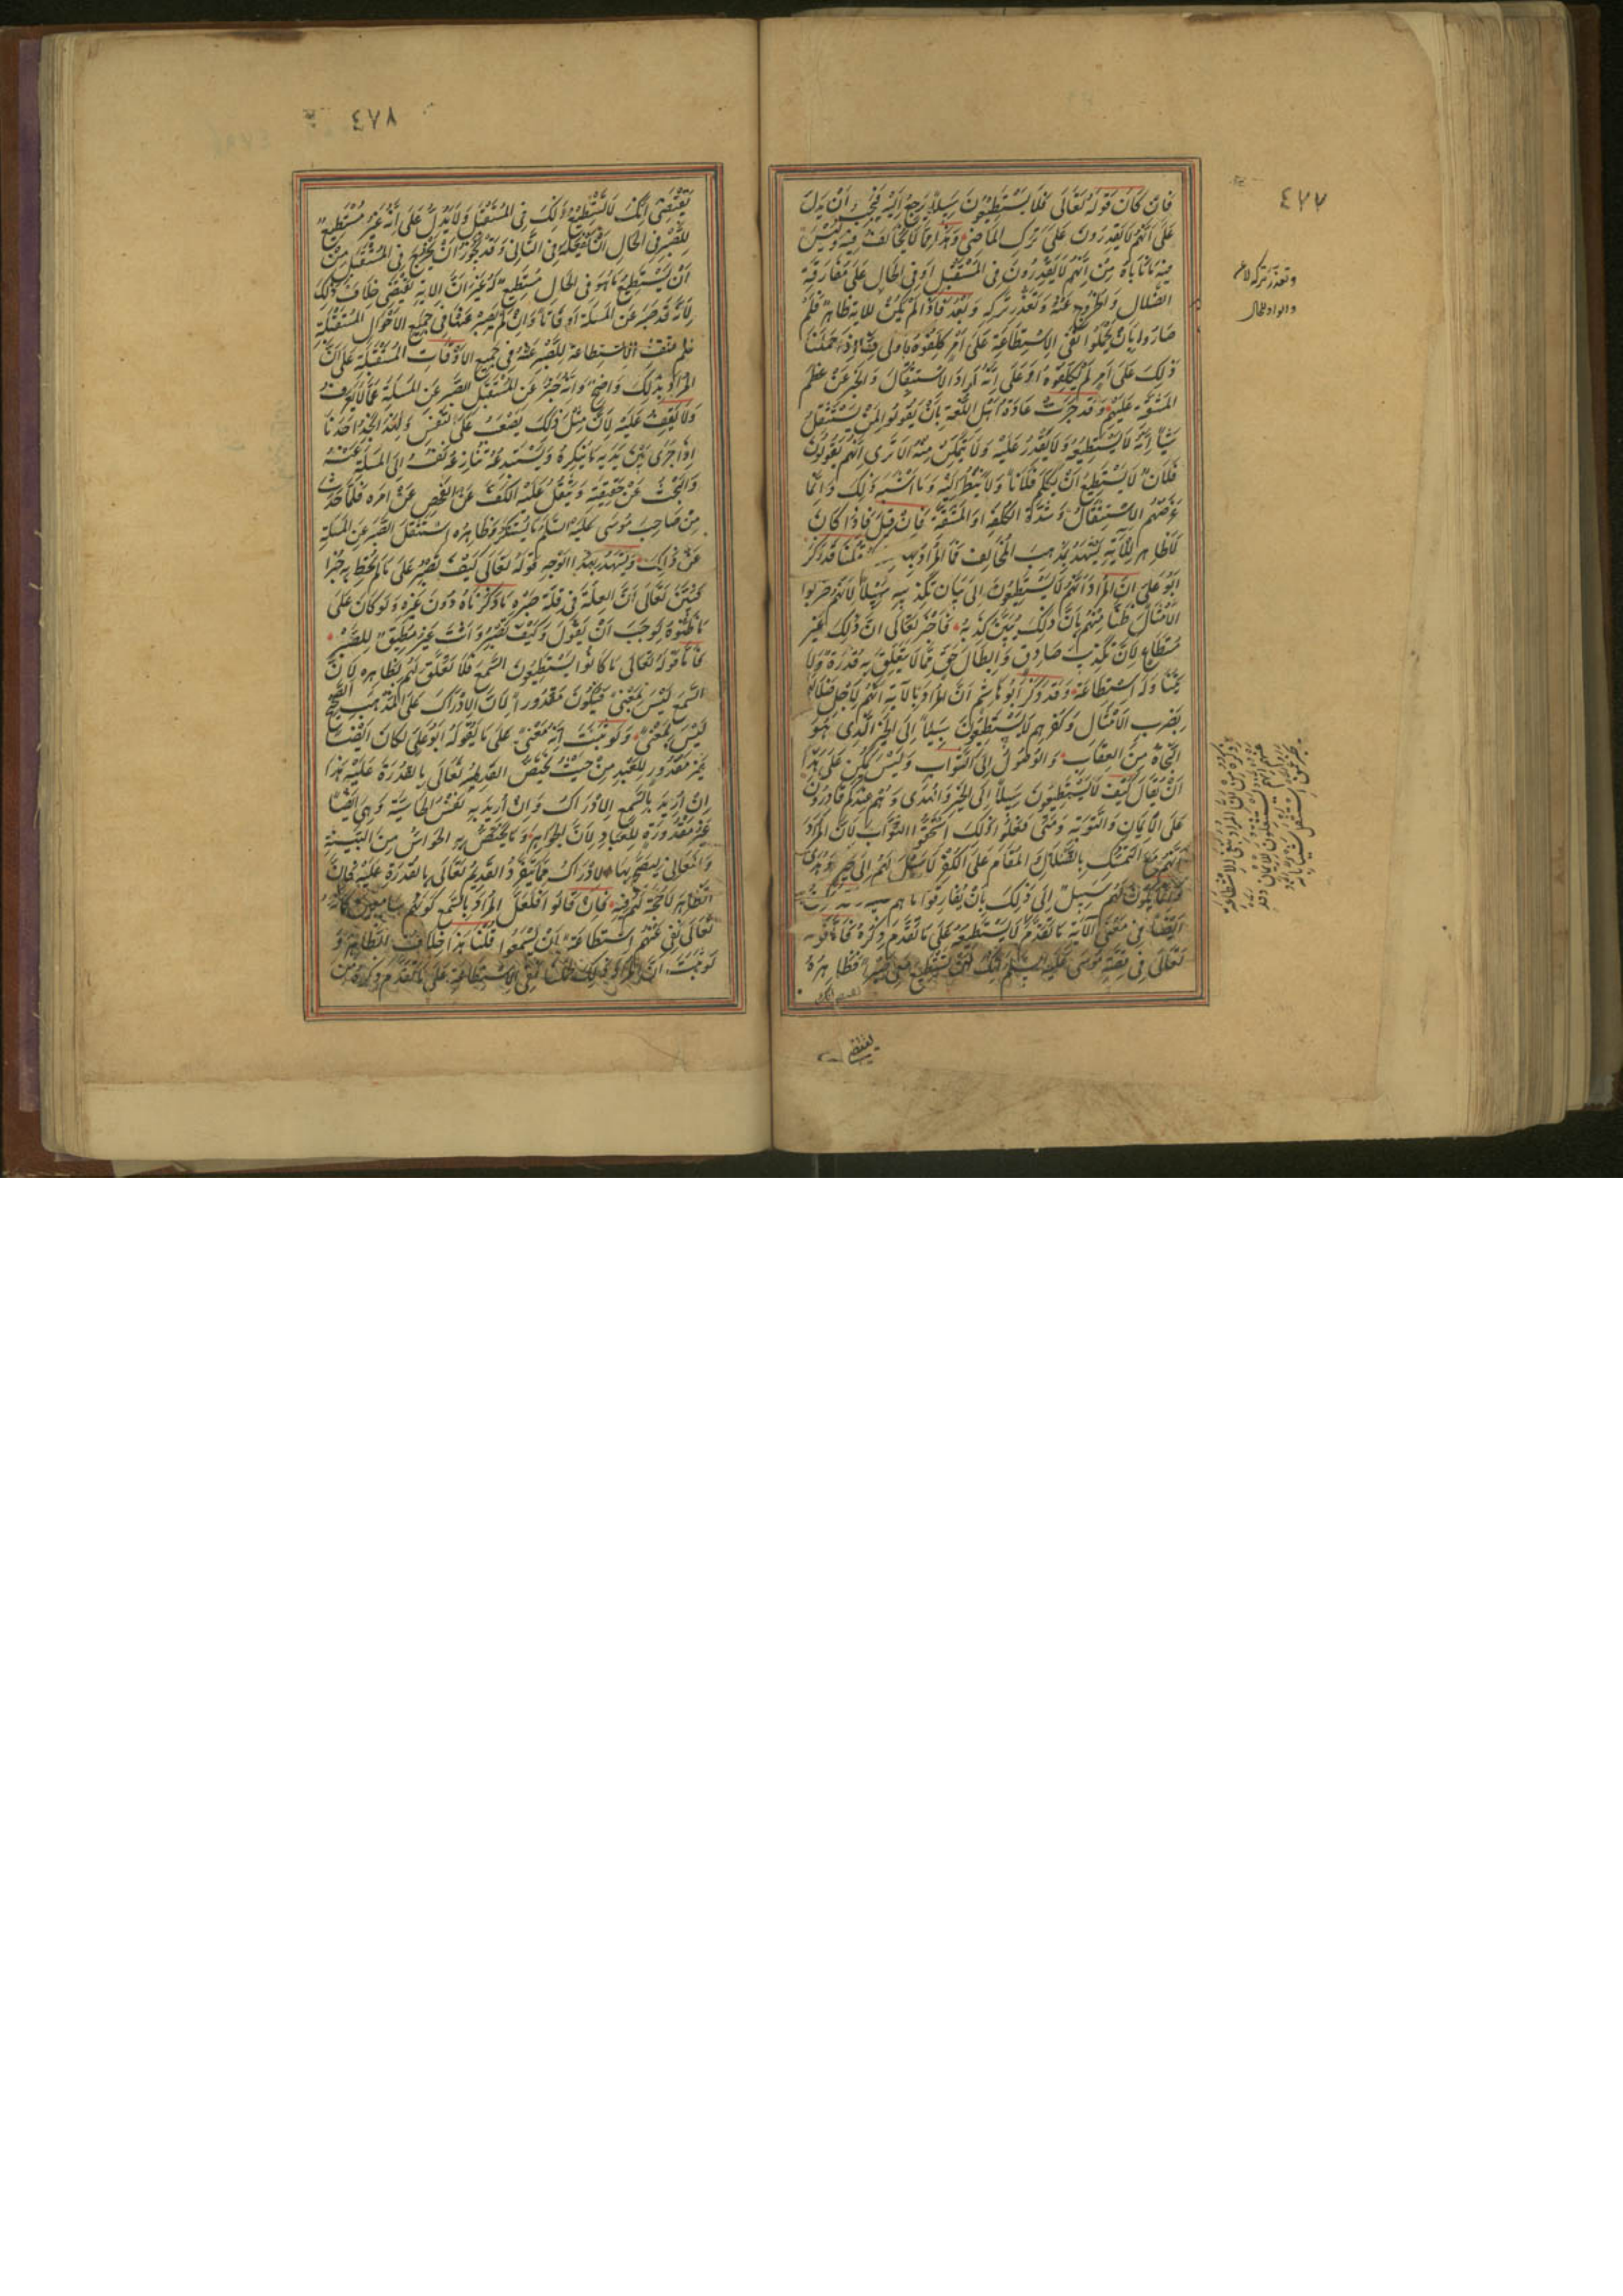 ٤٧٧
فان كَانَ قَولهُ تَعَالى فَلَا يَسْتَطِيعُونَ سَبِيلًا يَرجعُ اِلَيْهِ فَيَجِبُ اَنْ يَدلَ
عَلَى اَنّهُمْ لَا يَقْدِرُونَ عَلَى تَرْكِ المَاضِي وَهَذا مِمّا لَا يُخَالفُ فِيهِ وَلَيْسَ
فِيهِ مَا نَابَاهُ مِنْ اَنّهُمْ لَا يَقْدِرُونَ فِى المُسْتَقْبَلِ اَوفِى الحَالِ عَلَى مُفَارقَةِ
الضَّلَالِ وَالخُرُوجِ عَنْهُ وَتعَذرِ تركِهِ وَبَعْدُ فَاذَا لَمْ يَكُنْ لِلايَةِ ظَاهِرٌ فَلِمَ
صَارُوا بِانْ يَحْمِلُوا نَفْىَ الاِسْتِطَاعَةِ عَلَى اَمْرٍ كُلِّفُوهُ بِاَولَى مِنّا اِذَا حَمَلْنَا
ذَلِكَ عَلَى اَمرٍ لَمْ يُكَلَّفُوهُ اَوْ عَلَى اَنّهُ اَرادَ الاسْتِثْقَالَ وَالخَبَرَ عَنْ عِظَمِ
المَشَقَّةِ عَلَيْهِمْ وَقَد جَرَتْ عَادَةُ اَهْلِ اللُّغَةِ بِاَنْ يَقُولُوا لِمَنْ يَسْتَثْقِلُ
شَيْئًا اِنّهُ لَا يَسْتَطِيعُهُ وَلَا يَقْدِرُ عَلَيْهِ وَلَا يَتَمَكّنُ مِنْهُ اَلَا تَرَى اَنّهُم يَقُولُونَ
فُلَانٌ لَا يَسْتَطِيعُ اَنْ يُكَلِّمَ فُلَانًا وَلَا يَنْظُرُ اِلَيْهِ وَمَا اَشْبَهَ ذَلِكَ وَاِنّمَا
غَرَضُهُم الاسْتِثْقَالُ وَشِدّةُ الكُلْفَةِ اَو المَشَقّةِ فَاِنْ قِيلَ فَاِذَا كَانَ
لَا ظَاهِرَ لِلْآيَةِ يَشْهَدُ بِمَذْهَبِ المُخَالِفِ فَمَا المُرَادُ بِهَا قُلْنَا قَدْ ذَكَرَ
اَبُو عَلى اَنّ المُرَادَ اَنّهُمْ لَا يَسْتَطِيعُونَ اِلى بَيَانِ تَكْذِيبِهِ سَبِيلًا لِاَنّهُمْ ضَرَبُوا
الاَمْثَالَ ظَنًّا مِنْهُمْ بِاَنَّ ذَلِكَ يُبَيِّنُ كَذِبَهُ فَاَخْبَرَ تَعَالَى اَنّ ذَلِكَ غَيْرُ
مُسْتَطَاعٍ لِاَنّ تَكْذِيبَ صَادِقٍ وَاِبْطَالَ حَقٍّ مِمّا لَا يَتَعَلّقُ بِهِ قُدْرَةٌ وَلَا
يَتَنَاوَلُهُ اسْتِطَاعَةٌ وَقَدْ ذَكَرَ اَبُو هَاشِمٍ اَنّ المُرَادَ بِالآيَةِ اَنّهُمْ لِاَجْلِ ضَلَالِهِمْ
بِضَربِ الاَمْثَالِ وَكُفْرِهِمْ لَا يَسْتَطِيعُونَ سَبِيلًا اِلَى الخَيْرِ الّذِى هُوَ
النّجَاةُ مِنَ العِقَابِ وَالوُصُولُ اِلَى الثّوَابِ وَلَيْسَ يُمْكِنُ عَلَى هَذَا
اَنْ يُقَالَ كَيْفَ لَا يَسْتَطِيعُونَ سَبِيلًا اِلَى الخَيْرِ وَالهُدَى وَهُمْ عِنْدَكُمْ قَادِرُونَ
عَلَى الاِيمَانِ وَالتّوْبَةِ وَمَتَى فَعَلُوا ذَلِكَ اسْتَحَقّوا الثّوَابَ لِاَنّ المُرَادَ
اَنّهُمْ مَعَ التّمَسّكِ بِالضّلَالِ وَالمقَامِ عَلَى الكُفْرِ لَا سَبِيلَ لَهُمْ اِلَى خَيْرٍ وَهُدًى
وَاِنّمَا يَكُونُ لَهُمْ سَبِيلٌ اِلَى ذَلِكَ بِاَنْ يُفَارِقُوا مَا هُمْ
اَيْضًا فِى مَعْنَى الآيَةِ مَا تَقَدّمَ لَا يَسْتَطِيعُهُ عَلَى مَا تَقَدّمَ ذِكْرُهُ فَاَمّا قَولهُ
تَعَالَى فِى قِصّةِ مُوسَى عَلَيْهِ السّلَمُ اِنّكَ لَنْ تَسْتَطِيعَ مَعِىَ صَبْرًا فَظَاهِرُهُ
يقتضى
وتعذر تركه لا
٤٧٨
يَقْتَضِى اِنّكَ لَا تَسْتَطِيعُ ذَلِكَ فِى المُسْتَقْبَلِ وَلَا يَدُلّ عَلَى اَنّهُ غَيْرُ مُسْتَطِيعٍ
لِلصّبْرِ فِى الحَالِ اَنْ يَفْعَلَهُ فِى الثّانِى وَقَد يَجُوزُ اَنْ يَخْرُجَ فِى المُسْتَقْبَلِ مِنْ
اَنْ يَسْتَطِيعَ مَا هُوَ فِى الحَالِ مُسْتَطِيعٌ لَهُ غَيْرَ اَنّ الايَةَ تَقْتَضِى خِلَافَ ذَلِكَ
لِاَنّهُ قَد صَبَرَ عَن المَسْئَلَةِ اَوْقَاتًا وَاِنْ لَمْ يَصْبِرْ عَنْهَا فِى جَمِيعِ الاَحْوَالِ المُسْتَقْبَلَةِ
فَلَمْ تَنْتَفِ الاِسْتِطَاعَةُ لِلصّبْرِ عَنْهُ فِى جَمِيعِ الاَوْقَاتِ المُسْتَقْبَلَةِ عَلَى اَنّ
المُرَادَ بِذَلِكَ وَاضِحٌ وَاَنّهُ خَبّرَ عَن اسْتِثْقَالِ الصّبْرِ عَن المَسْئَلَةِ عَمّا لَا يَعْرِفُ
وَلَا يَقِفُ عَلَيْهِ لِاَنّ مِثْلَ ذَلِكَ يَصْعُبُ عَلَى النّفْسِ وَلِهَذَا نَجِدُ اَحَدَنَا
اِذَا جَرَى بَيْنَ يَدَيْهِ مَا يُنْكِرُهُ وَيَسْتَبْدِعُهُ تُنَازِعُهُ نَفْسُهُ اِلَى المَسْئَلَةِ عَنْهُ
وَالبَحْثِ عَنْ حَقِيقَتِهِ وَيَثْقُلُ عَلَيْهِ الكَفّ عَن الفَحْصِ عَنْ اَمْرِهِ فَلَمّا حَدَثَ
مِنْ صَاحِبِ مُوسَى عَلَيْهِ السّلَمُ مَا يُسْتَنْكَرُ ظَاهِرُهُ اسْتَثْقَلَ الصّبْرَ عَن المَسْئَلَةِ
عَنْ ذَلِكَ وَيَشْهَدُ بِهَذَا الوَجْهِ قَولهُ تَعَالَى وَكَيْفَ تَصْبِرُ عَلَى مَا لَمْ تُحِطْ بِهِ خُبْرًا
فَبَيّنَ تَعَالَى اَنّ العِلّةَ فِى قِلّةِ صَبْرِهِ مَا ذَكَرْنَاهُ دُونَ غَيْرِهِ وَلَو كَانَ عَلَى
مَا ظَنّوهُ لَوَجَبَ اَنْ يَقُولَ وَكَيْفَ تَصْبِرُ وَاَنْتَ غَيْرُ مُطِيقٍ لِلصّبْرِ
فَاَمّا قَولهُ تَعَالَى مَا كَانُوا يَسْتَطِيعُونَ السّمْعَ فَلَا تَعَلّقَ لَهُمْ بِظَاهِرِهِ لِاَنّ
السّمْعَ لَيْسَ بِمَعْنًى فَيَكُونَ مَقْدُورًا لِاَنّ الاِدْرَاكَ عَلَى المَذْهَبِ الصّحِيحِ
لَيْسَ بِمَعْنًى وَلَو ثَبَتَ اَنّهُ مَعْنًى عَلَى مَا يَقُولهُ اَبُو عَلى لَكَانَ اَيْضًا
غَيْرَ مَقْدُورٍ لِلْعَبْدِ مِنْ حَيْثُ يَخْتَصّ القَدِيمُ تَعَالَى بِالقُدْرَةِ عَلَيْهِ هَذَا
اِنْ اُرِيدَ بِالسّمْعِ الاِدْرَاكُ وَاِنْ اُرِيدَ بِهِ نَفْسُ الحَاسّةِ فَهِىَ اَيْضًا
غَيْرُ مَقْدُورَةٍ لِلْعِبَادِ لِاَنّ الجَوَاهِرَ وَمَا يَخْتَصّ بِهِ الحَوَاسّ مِنَ البِنْيَةِ
وَالمَعَانِى لِيَصِحّ بِهَا الاِدْرَاكُ مِمّا يَتَفَرّدُ القَدِيمُ تَعَالَى بِالقُدْرَةِ عَلَيْهِ فَاِنّ
الظّاهِرَ لَا حُجّةَ لَهُمْ فِيهِ فَاِنْ قَالُوا فَلَعَلّ المُرَادَ بِالسّمْعِ كَونُهُمْ سَامِعِينَ كَاَنّهُ
تَعَالَى نَفَى عَنْهُم اسْتِطَاعَةَ اَنْ يَسْمَعُوا قُلْنَا هَذَا خِلَافُ الظّاهِرِ وَ
لَو ثَبَتَ اَنّ المُرَادَ ذَلِكَ نَفْىَ الاِسْتِطَاعَةِ عَلَى مَا تَقَدّمَ ذِكْرُهُ مِن